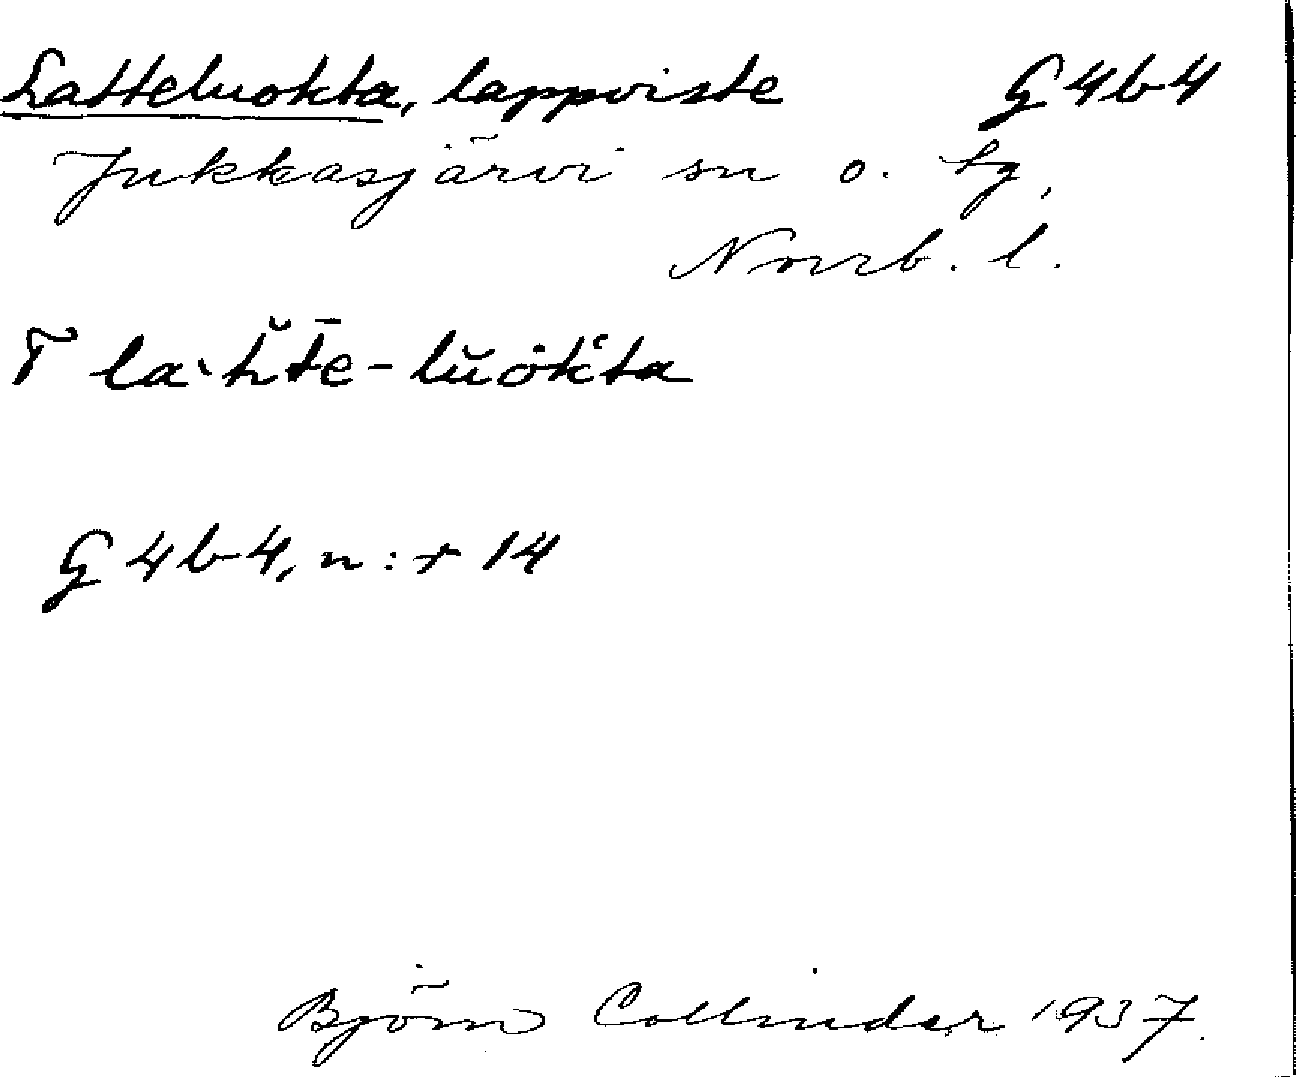 Latteluokta, lappviste G 4b4
Jukkasjärvi sn o. tg,
Norrb. l.
G 4b4, n:r 14
Björn Collinder 1937.